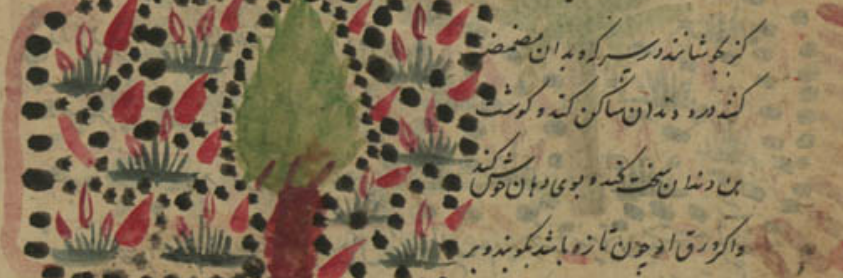 کر بجوشانند در سرکه و بدان مضمضه
کنند درد دندان ساکن کند و گوشت
بن دندان سخت کند و بوی دهان خوش کند
و اگر ورق او چون تازه باشد بکوبند و بر